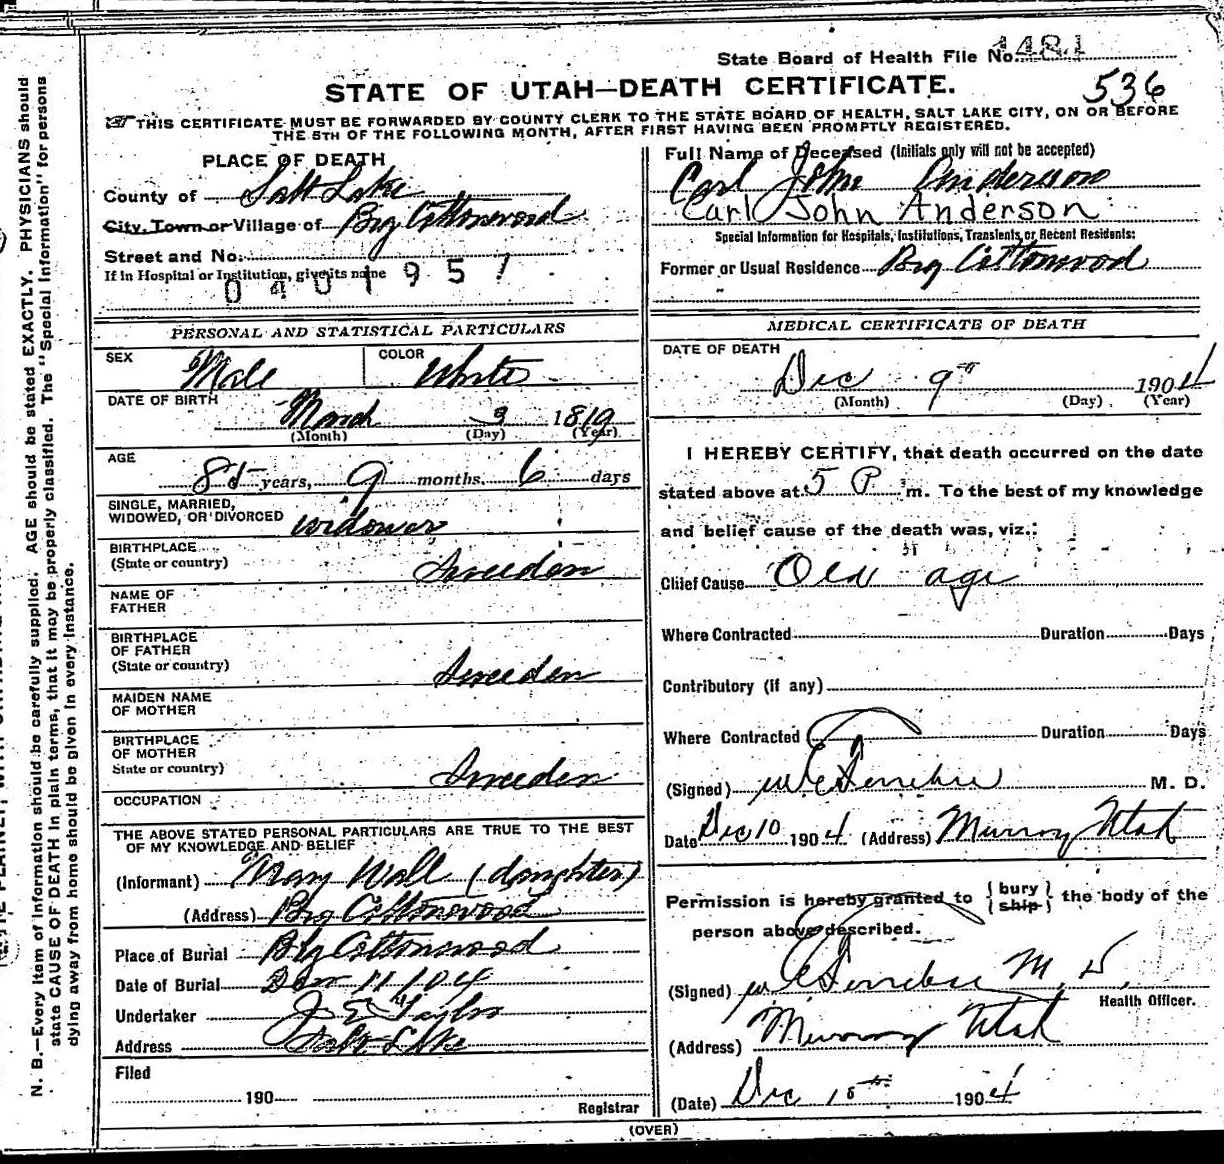 State Board of Health File No. 1481
536
STATE OF UTAH—DEATH CERTIFICATE.
THIS CERTIFICATE MUST BE FORWARDED BY COUNTY CLERK TO THE STATE BOARD OF HEALTH, SALT LAKE CITY, ON OR BEFORE
THE 5TH OF THE FOLLOWING MONTH, AFTER FIRST HAVING BEEN PROMPTLY REGISTERED.
PLACE OF DEATH
County of Salt Lake
City, Town or Village of Big Cottonwood
Street and No.
If in Hospital or Institution, give its name
0401957
PERSONAL AND STATISTICAL PARTICULARS
SEX Male COLOR White
DATE OF BIRTH March 3 1819
(Month) (Day) (Year)
AGE
85 years, 9 months. 6 days
SINGLE, MARRIED,
WIDOWED, OR DIVORCED widower
BIRTHPLACE
(State or country) Sweeden
NAME OF
FATHER
BIRTHPLACE
OF FATHER
(State or country) Sweeden
MAIDEN NAME
OF MOTHER
BIRTHPLACE
OF MOTHER
State or country) Sweeden
OCCUPATION
THE ABOVE STATED PERSONAL PARTICULARS ARE TRUE TO THE BEST
OF MY KNOWLEDGE AND BELIEF
(Informant) Mary Wall (daughter)
(Address) Big Cottonwood
Place of Burial Big Cottonwood
Date of Burial Dec 11 104
Undertaker J E Taylor
Address Salt Lake
Filed
190
Registrar
Full Name of Deceased (Initials only will not be accepted)
Carl John Anderson
Carl John Anderson
Special Information for Hospitals, Institutions, Transients, or Recent Residents:
Former or Usual Residence Big Cottonwood
MEDICAL CERTIFICATE OF DEATH
DATE OF DEATH
Dec 9th 1904
(Month) (Day) (Year)
I HEREBY CERTIFY, that death occurred on the date
stated above at 5 P m. To the best of my knowledge
and belief cause of the death was, viz.:
Chief Cause Old age
Where Contracted Duration Days
Contributory (if any)
Where Contracted Duration Days
(Signed) M. D.
Date Dec 10 1904 (Address) Murray Utah
Permission is hereby granted to {bury
ship} the body of the
person above described.
(Signed) M. D.
Health Officer.
(Address) Murray Utah
(Date) Dec 10th 1904
(OVER)
N. B.—Every item of information should be carefully supplied. AGE should be stated EXACTLY. PHYSICIANS should
state CAUSE OF DEATH in plain terms, that it may be properly classified. The "Special Information" for persons
dying away from home should be given in every instance.